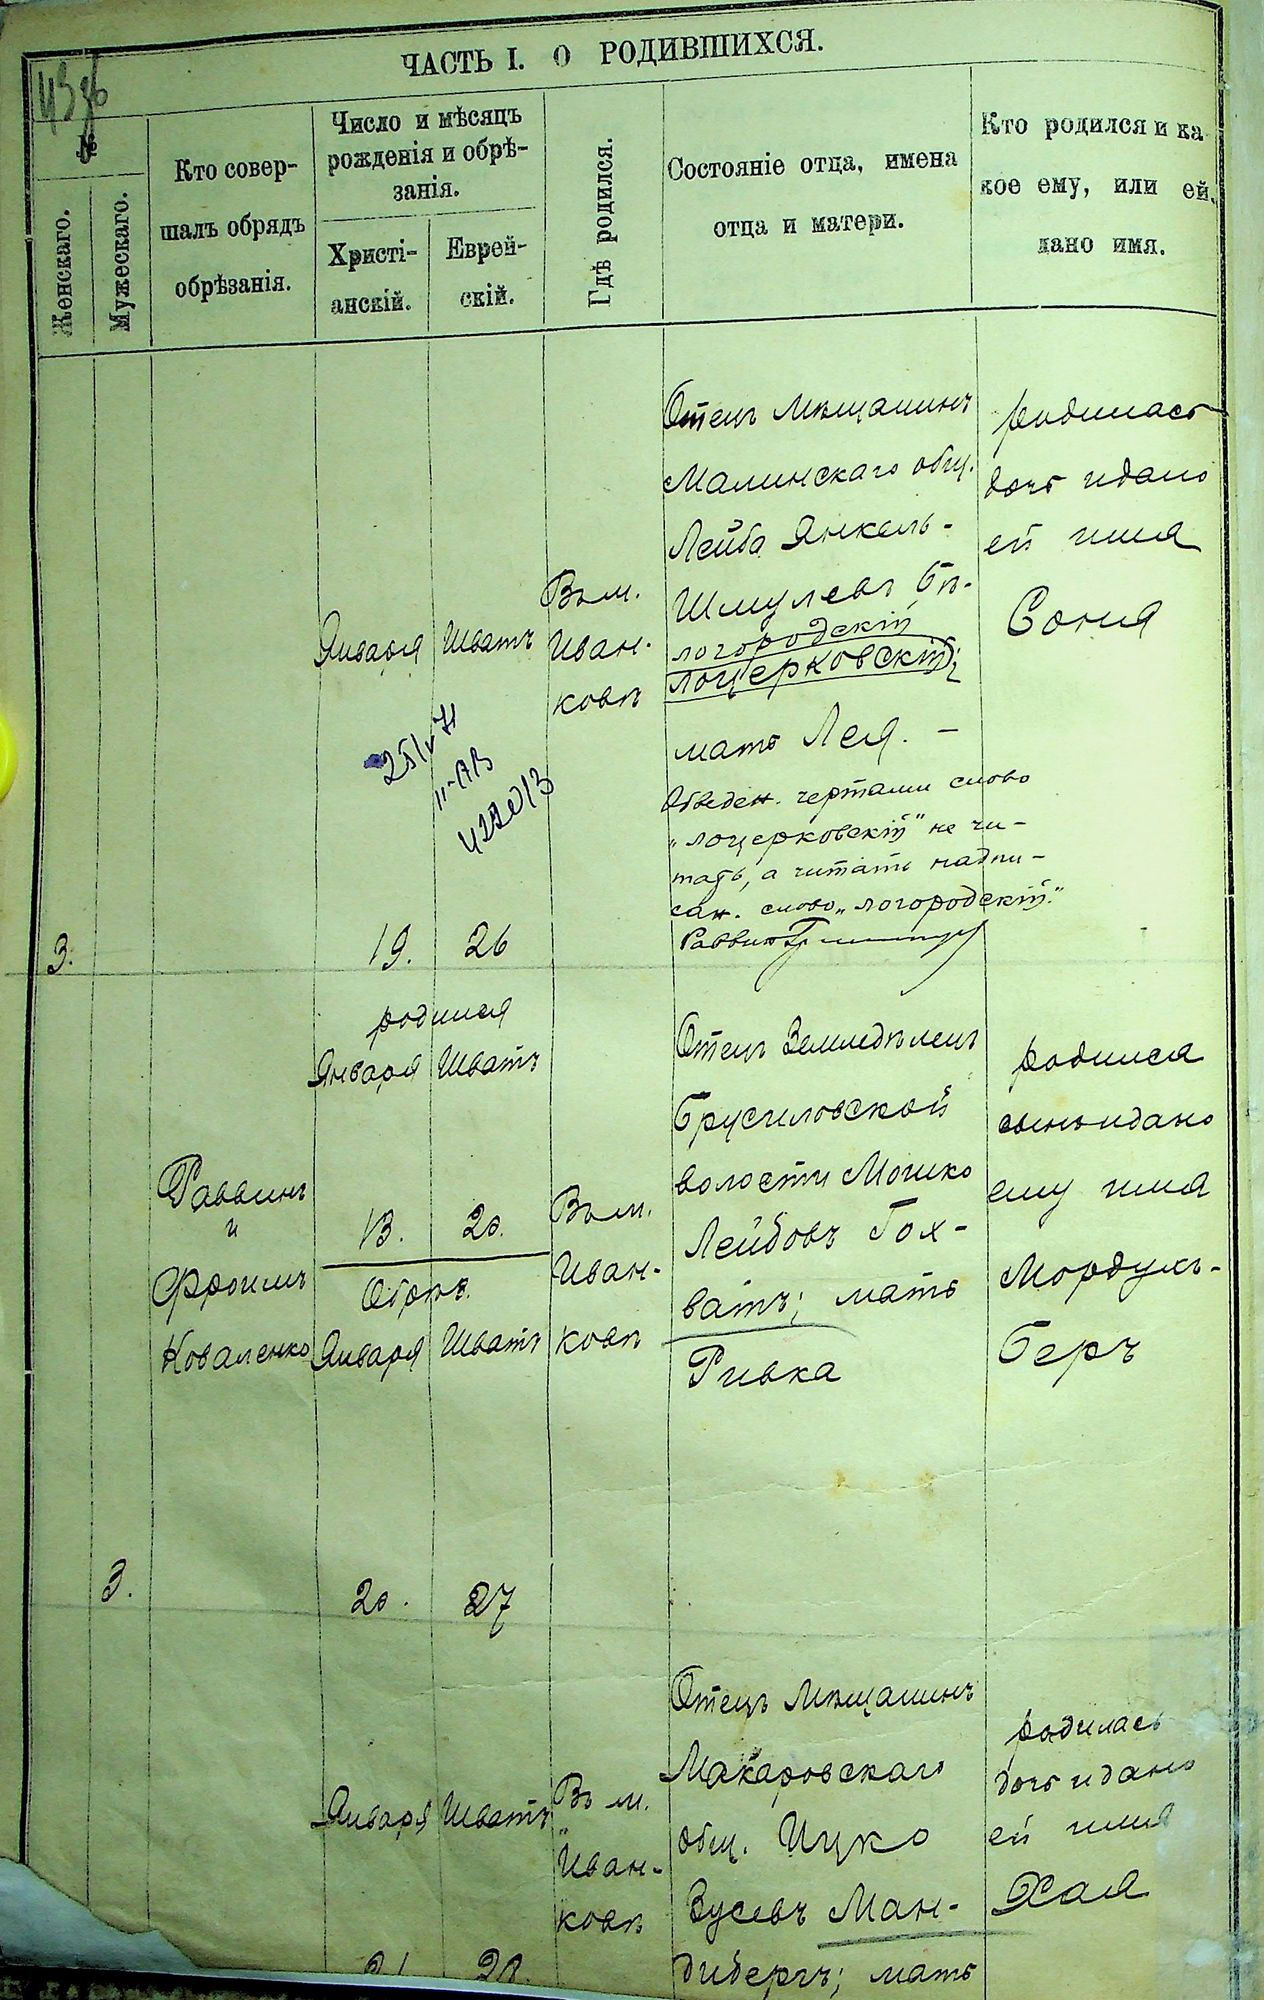 ЧАСТЬ I. О РОДИВШИХСЯ.
№
Женскаго.
Мужескаго.
Кто совер-
шалъ обрядъ
обрѣзанія.
Число и мѣсяцъ
рожденія и обрѣ-
занія.
Христі-
анскій.
Еврей-
скій.
Гдѣ родился.
Состояніе отца, имена
отца и матери.
Кто родился и ка
кое ему, или ей,
дано имя.
3.
Января
19.
Шватъ
26
Въ м.
Иван-
ковѣ
Отецъ Мѣщанинъ
Малинскаго общ.
Лейба Янкель-
Шмулевъ Бѣ-
логородскій
лоцерковскій;
мать Лея. —
Обведен. чертами слово
„лоцерковскій" не чи-
тать, а читать надпи-
сан. слово „логородскій."
Раввин
родилась
дочь и дано
ей имя
Соня
25/V 71
II-АВ
422013
3.
Раввинъ
и
Фроимъ
Коваленко
родился
Января Шватъ
13. 20.
Обрѣз.
Января Шватъ
20. 27
Въ м.
Иван-
ковѣ
Отецъ Земледѣлец
Брусиловской
волости Мошко
Лейбовъ Гох-
ватъ; мать
Ривка
родился
сынъ и дано
ему имя
Мордухъ-
Беръ
Января Шватъ
21 28.
Въ м.
Иван-
ковѣ
Отецъ Мѣщанинъ
Макаровскаго
общ. Ицко
Зусевъ Ман-
дибергъ; мать
родилась
дочь и дано
ей имя
Хая